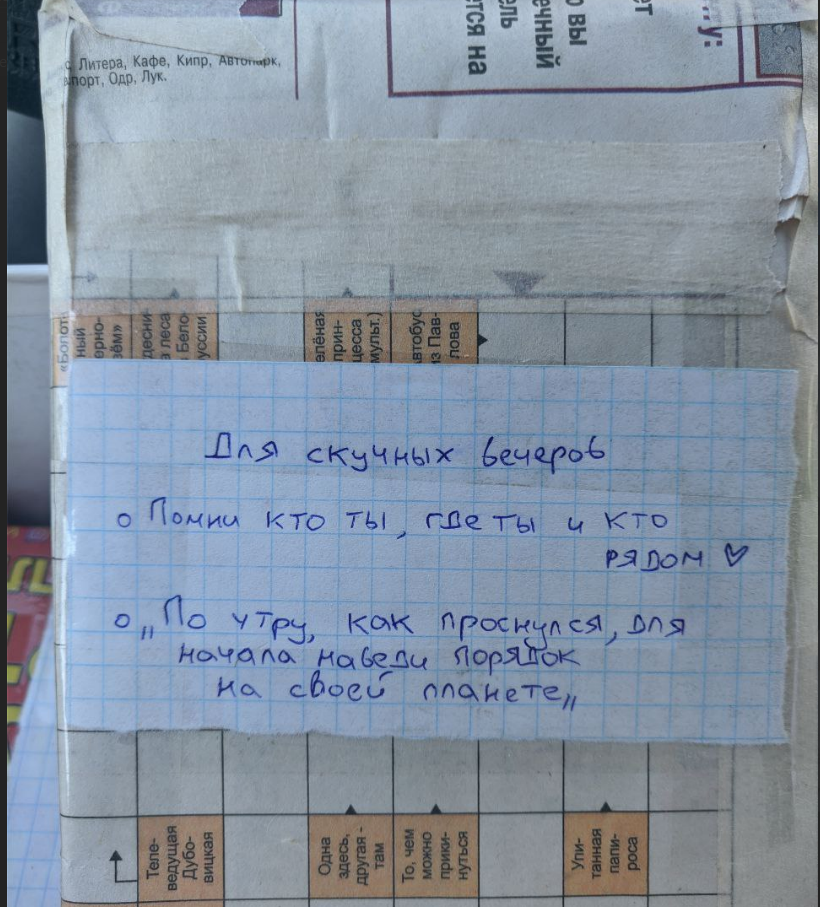 Литера, Кафе, Кипр, Автопарк,
порт, Одр, Лук.
вы
ель
енный
тся на
ет
у:
«Болот
ный
ерно-
ём»
десни
леса
Бело
уссии
елёная
прин-
цесса
мульт.)
Автобус
из Пав-
лова
Для скучных вечеров
о Помни кто ты, где ты и кто
рядом ♡
о „По утру, как проснулся, для
начала наведи порядок
на своей планете„
Теле-
ведущая
Дубо-
вицкая
Одна
здесь,
другая -
там
То, чем
можно
прики-
нуться
Упи-
танная
папи-
роса